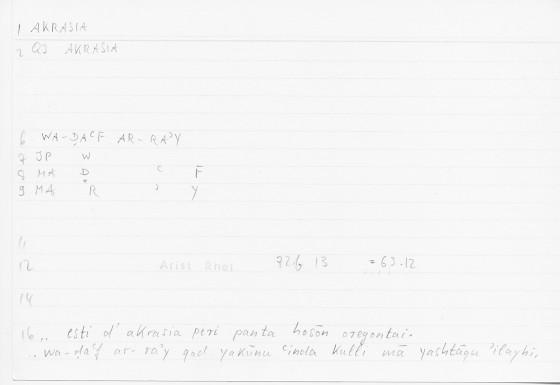 1 AKRASIA
2 QJ AKRASIA
6 WA-ḌAʿF AR-RAʾY
7 JP W
8 MA Ḍ ʿ F
9 MA R ʾ Y
11
12 Arist Rhet 72b 13 = 63.12
14
16 ,, esti d' akrasia peri panta hosōn oregontai.
,, wa-ḍaʿf ar-raʾy qad yakūnu ʿinda kulli mā yashtāqu ʾilayhi,